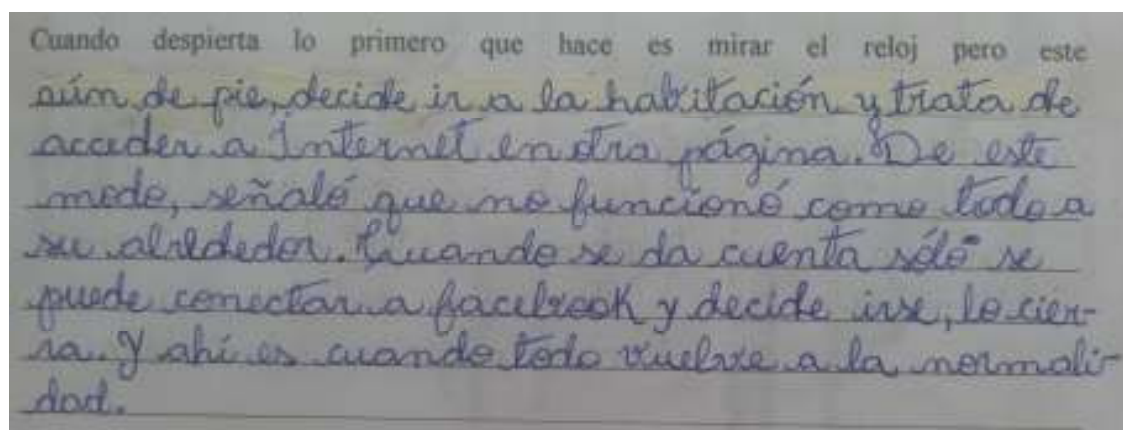 Cuando despierta lo primero que hace es mirar el reloj pero este
aún de pie, decide ir a la habitación y trata de
acceder a Internet en otra página. De este
modo, señaló que no funcionó como todo a
su alrededor. Cuando se da cuenta sólo se
puede conectar a facebook y decide irse, lo cier-
ra. Y ahí es cuando todo vuelve a la normali-
dad.